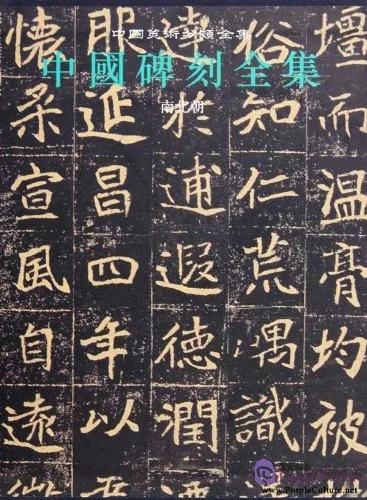 中國美術分類全集
中國碑刻全集
南北朝
而溫膏均被
俗知仁荒嵎識
達於逋遐德潤
服延昌四年以
懷柔宣風自遠
www.PurpleCulture.net